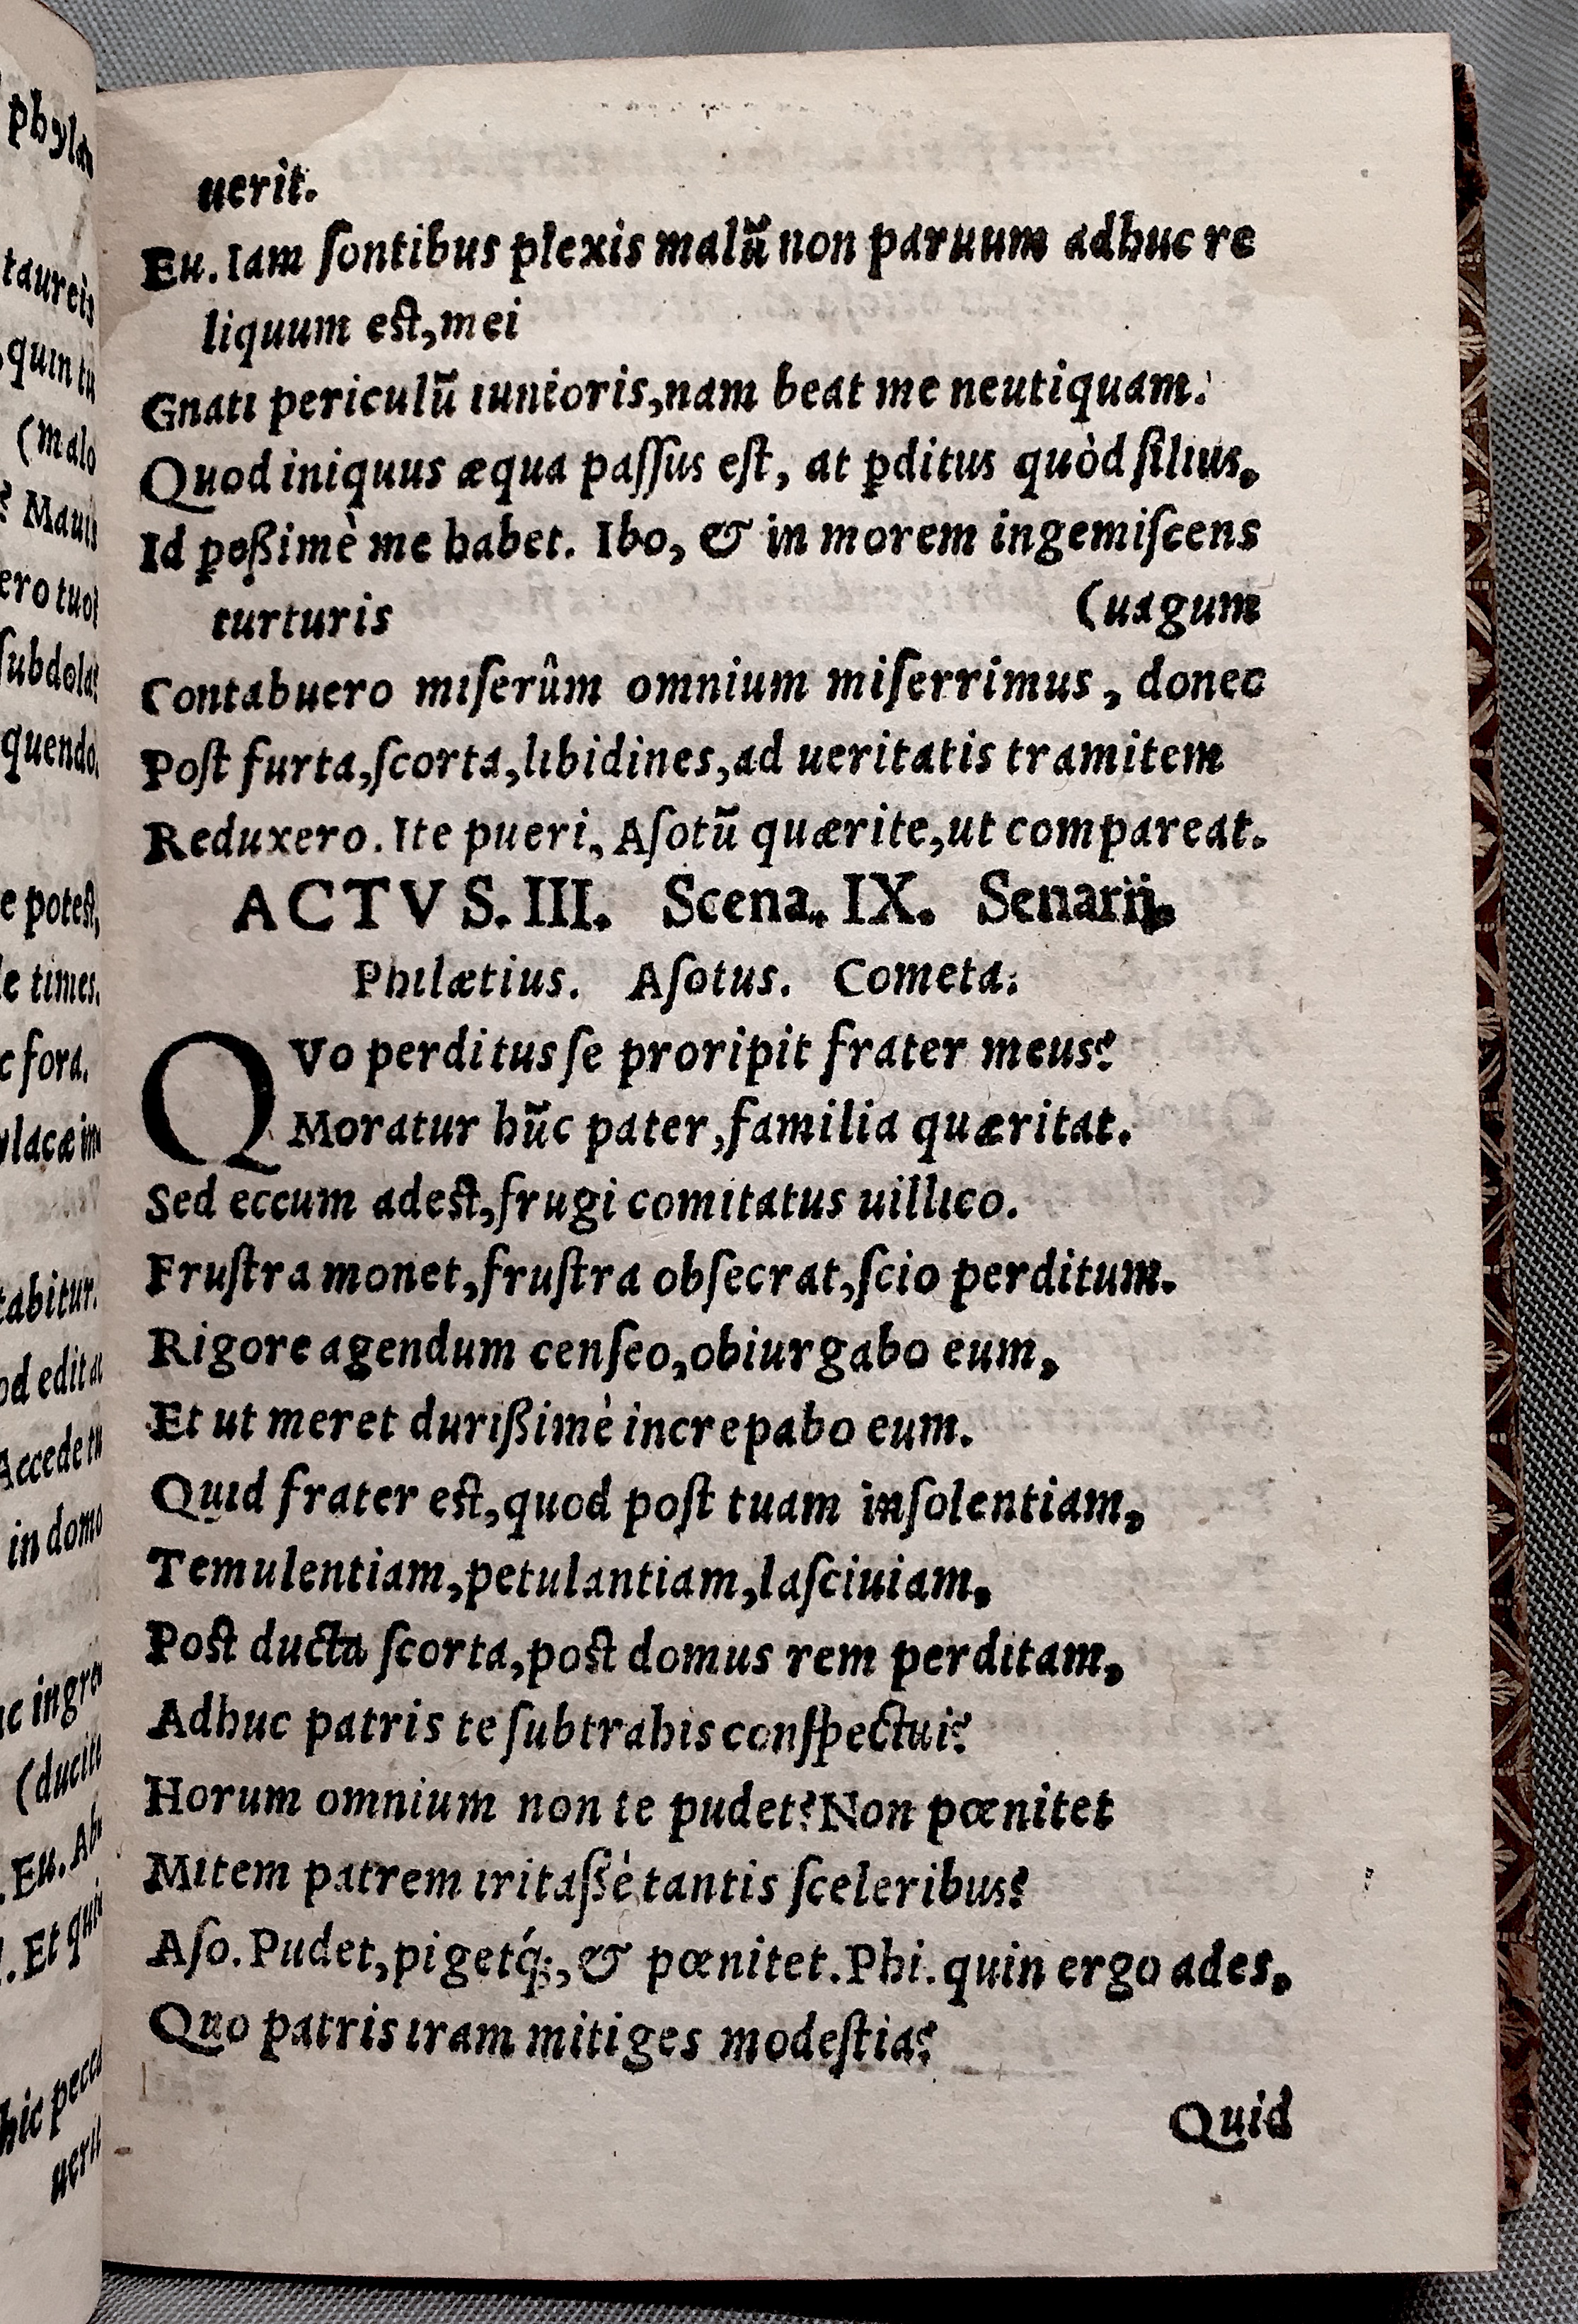 phylac
taureis
quin tu
(malo
? Mauis
ero tuos
subdolas
quendo.
e potest,
le times.
c fora.
ylacæ im
tabitur.
od edit ac
Accede tu
in domo
ac ingre
(ducite
. Eu. Abi
. Et quid
hic pecca
uerit
uerit.
Eu. Iam ſontibus plexis malũ non paruum adhuc re
liquum est, mei
Gnati periculũ iunioris, nam beat me neutiquam.
Quod iniquus æqua paſſus eſt, at ꝑditus quòd filius,
Id ꝑeßimè me habet. Ibo, & in morem ingemiſcens
turturis (uagum
Contabuero miſerûm omnium miſerrimus, donec
Poſt furta, ſcorta, libidines, ad ueritatis tramitem
Reduxero. Ite pueri, Aſotũ quærite, ut compareat.
ACTVS. III. Scena. IX. Senarij.
Philætius. Aſotus. Cometa.
QVo perditus ſe proripit frater meus?
Moratur hũc pater, familia quæritat.
Sed eccum adest, frugi comitatus uillico.
Fruſtra monet, fruſtra obſecrat, ſcio perditum.
Rigore agendum cenſeo, obiurgabo eum,
Et ut meret durißimè increpabo eum.
Quid frater est, quod poſt tuam inſolentiam,
Temulentiam, petulantiam, laſciuiam,
Post ducta ſcorta, post domus rem perditam,
Adhuc patris te ſubtrahis conſpectui?
Horum omnium non te pudet? Non pœnitet
Mitem patrem iritaſſè tantis ſceleribus?
Aſo. Pudet, pigetq́;, & pœnitet. Phi. quin ergo ades,
Quo patris iram mitiges modeſtia?
Quid